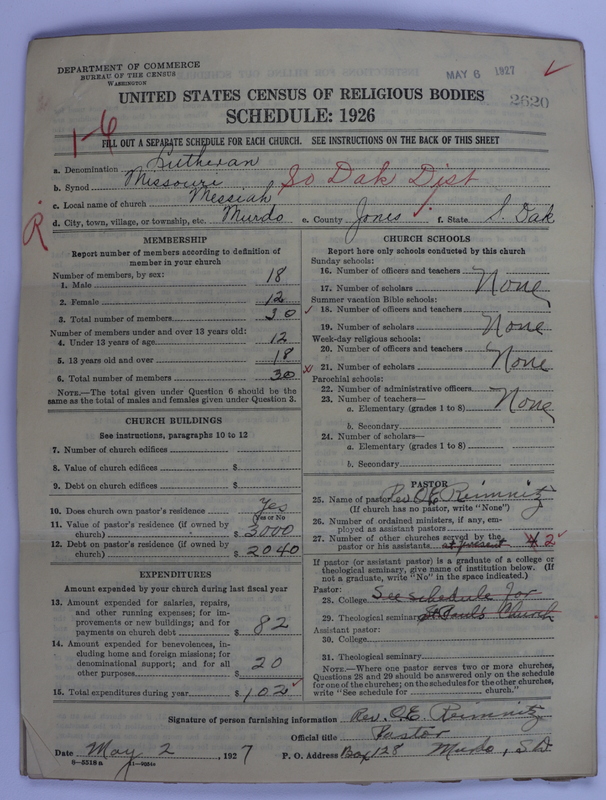 DEPARTMENT OF COMMERCE
BUREAU OF THE CENSUS
WASHINGTON
MAY 6 1927
UNITED STATES CENSUS OF RELIGIOUS BODIES
2620
SCHEDULE: 1926
1-6
FILL OUT A SEPARATE SCHEDULE FOR EACH CHURCH. SEE INSTRUCTIONS ON THE BACK OF THIS SHEET
a. Denomination Lutheran
b. Synod Missouri So Dak Dist
c. Local name of church Messiah
d. City, town, village, or township, etc. Murdo e. County Jones f. State S. Dak
R
MEMBERSHIP
Report number of members according to definition of member in your church
Number of members, by sex:
1. Male 18
2. Female 12
3. Total number of members 30
Number of members under and over 13 years old:
4. Under 13 years of age 12
5. 13 years old and over 18
6. Total number of members 30
NOTE.—The total given under Question 6 should be the same as the total of males and females given under Question 3.
CHURCH BUILDINGS
See instructions, paragraphs 10 to 12
7. Number of church edifices
8. Value of church edifices $
9. Debt on church edifices $
10. Does church own pastor's residence Yes
Yes or No
11. Value of pastor's residence (if owned by church) $ 3000
12. Debt on pastor's residence (if owned by church) $ 2040
EXPENDITURES
Amount expended by your church during last fiscal year
13. Amount expended for salaries, repairs, and other running expenses; for improvements or new buildings; and for payments on church debt $ 82
14. Amount expended for benevolences, including home and foreign missions; for denominational support; and for all other purposes $ 20
15. Total expenditures during year $ 102
CHURCH SCHOOLS
Report here only schools conducted by this church
Sunday schools:
16. Number of officers and teachers
17. Number of scholars None
Summer vacation Bible schools:
18. Number of officers and teachers
19. Number of scholars None
Week-day religious schools:
20. Number of officers and teachers
21. Number of scholars None
Parochial schools:
22. Number of administrative officers
23. Number of teachers— None
a. Elementary (grades 1 to 8)
b. Secondary
24. Number of scholars—
a. Elementary (grades 1 to 8)
b. Secondary
PASTOR
25. Name of pastor Rev. O.E. Reimnitz
(If church has no pastor, write "None")
26. Number of ordained ministers, if any, employed as assistant pastors
27. Number of other churches served by the pastor or his assistants at present 2
If pastor (or assistant pastor) is a graduate of a college or theological seminary, give name of institution below. (If not a graduate, write "No" in the space indicated.)
Pastor:
28. College See schedule for
29. Theological seminary St Pauls Church
Assistant pastor:
30. College
31. Theological seminary
NOTE.—Where one pastor serves two or more churches, Questions 28 and 29 should be answered only on the schedule for one of the churches; on the schedules for the other churches, write "See schedule for church."
Signature of person furnishing information Rev. O.E. Reimnitz
Official title Pastor
Date May 2, 1927 P. O. Address Box 128 Murdo, S.D.
8-5518a